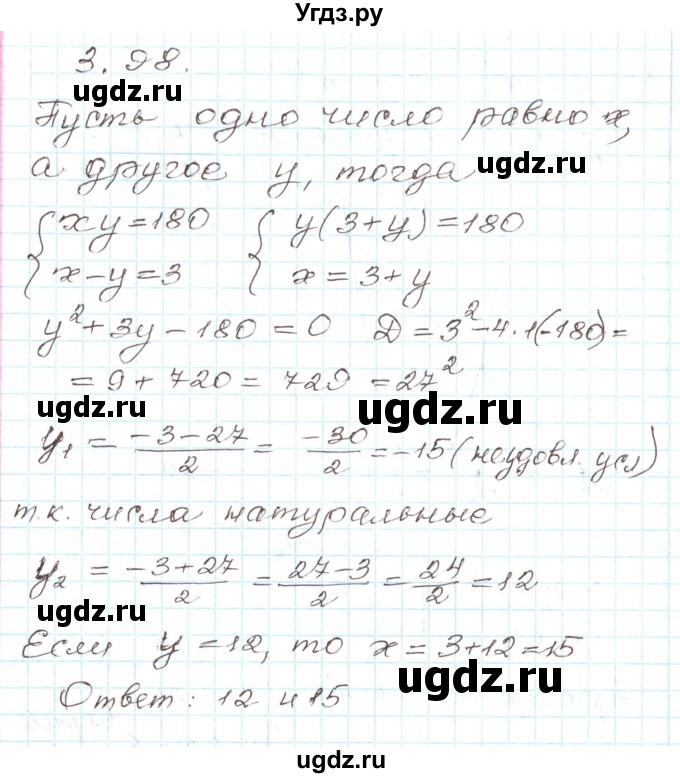 Угдз.ру
3.98.
ugdz.ru
Пусть одно число равно x,
ugdz.ru
а другое y, тогда
xy=180 y(3+y)=180
x-y=3 x=3+y
y²+3y-180=0 Д=3²-4·1(-180)=
=9+720=729=27²
ugdz.ru
ugdz.ru
y₁=(-3-27)/2=-30/2=-15(неудовл. усл)
т.к. числа натуральные
y₂=(-3+27)/2=(27-3)/2=24/2=12
ugdz.ru
Если y=12, то x=3+12=15
ugdz.ru
Ответ: 12 и 15
ugdz.ru